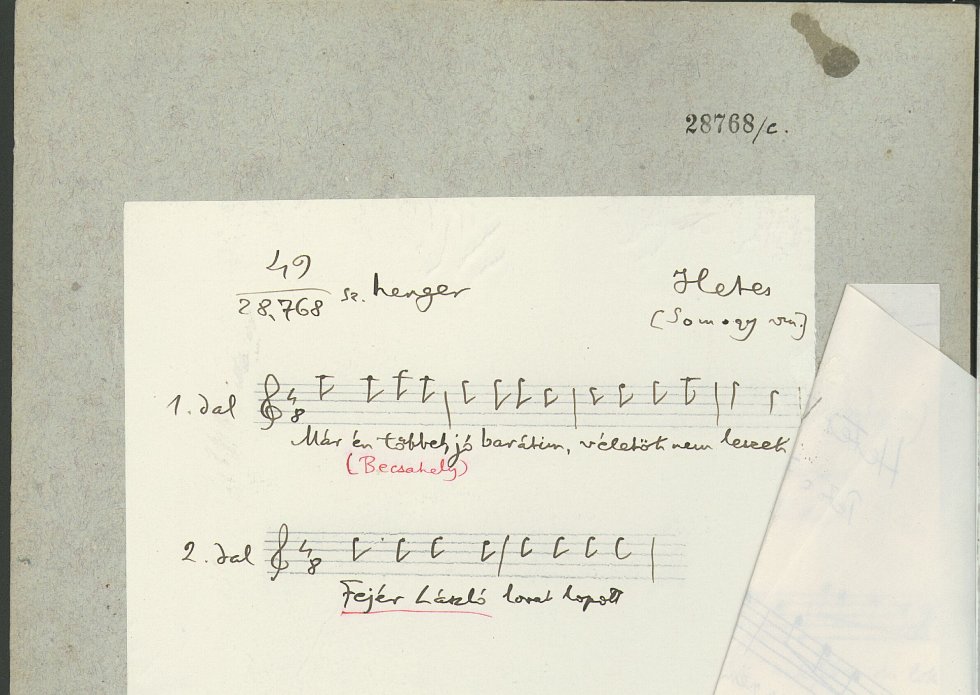 28768/c.
49
28,768 sz. henger
Hetes
(Somogy vm.)
1. dal
4
8
Már én többet, jó barátim, véletök nem leszek
(Becsahely)
2. dal
4
8
Fejér László lovat lopott